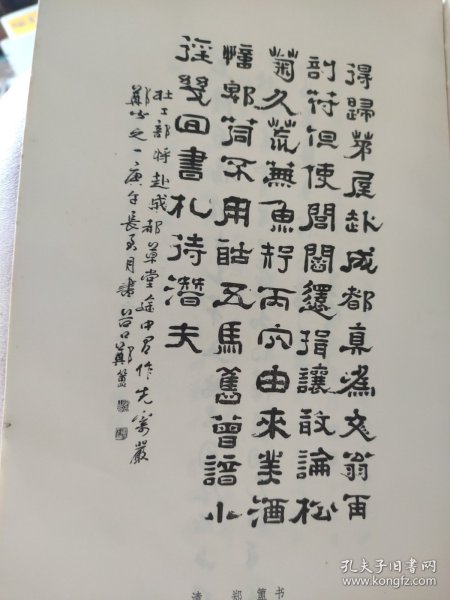 得歸茅屋赴成都直為文翁再
剖符但使閭閻還揖讓敢論松
菊久荒蕪魚知丙穴由來美酒
憶郫筒不用酤五馬舊曾諳小
徑幾回書札待潛夫
杜工部將赴成都草堂途中有作先寄嚴
鄭公之一庚午長至月書谷口鄭簠
清 郑簠书
孔夫子旧书网
www.kongfz.com